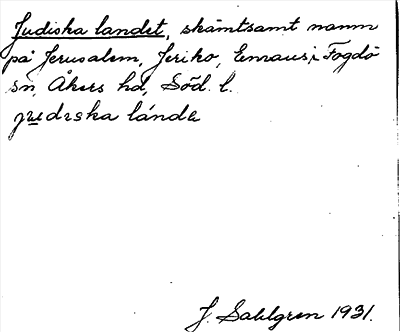 Judiska landet, skämtsamt namn
på Jerusalem, Jeriko, Emaus, i Fogdö
sn, Åkers hd, Söd. l.
ju̲diska lánde
J. Sahlgren 1931.